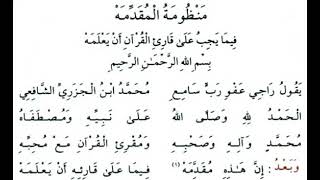 مَنْظُومَةُ الْمُقَدِّمَةِ
فِيمَا يَجِبُ عَلَىٰ قَارِئِ الْقُرْآنِ أَنْ يَعْلَمَهُ
بِسْمِ اللهِ الرَّحْمَـٰنِ الرَّحِيمِ
يَقُولُ رَاجِي عَفْوِ رَبٍّ سَامِعِ مُحَمَّدُ ابْنُ الْجَزَرِيِّ الشَّافِعِي
الْحَمْدُ لِلهِ وَصَلَّى اللهُ عَلَىٰ نَبِيِّهِ وَمُصْطَفَاهُ
مُحَمَّدٍ وَآلِهِ وَصَحْبِهِ وَمُقْرِئِ الْقُرْآنِ مَعْ مُحِبِّهِ
وَبَعْدُ : إِنَّ هَـٰذِهِ مُقَدِّمَهْ (١) فِيمَا عَلَىٰ قَارِئِهِ أَنْ يَعْلَمَهْ